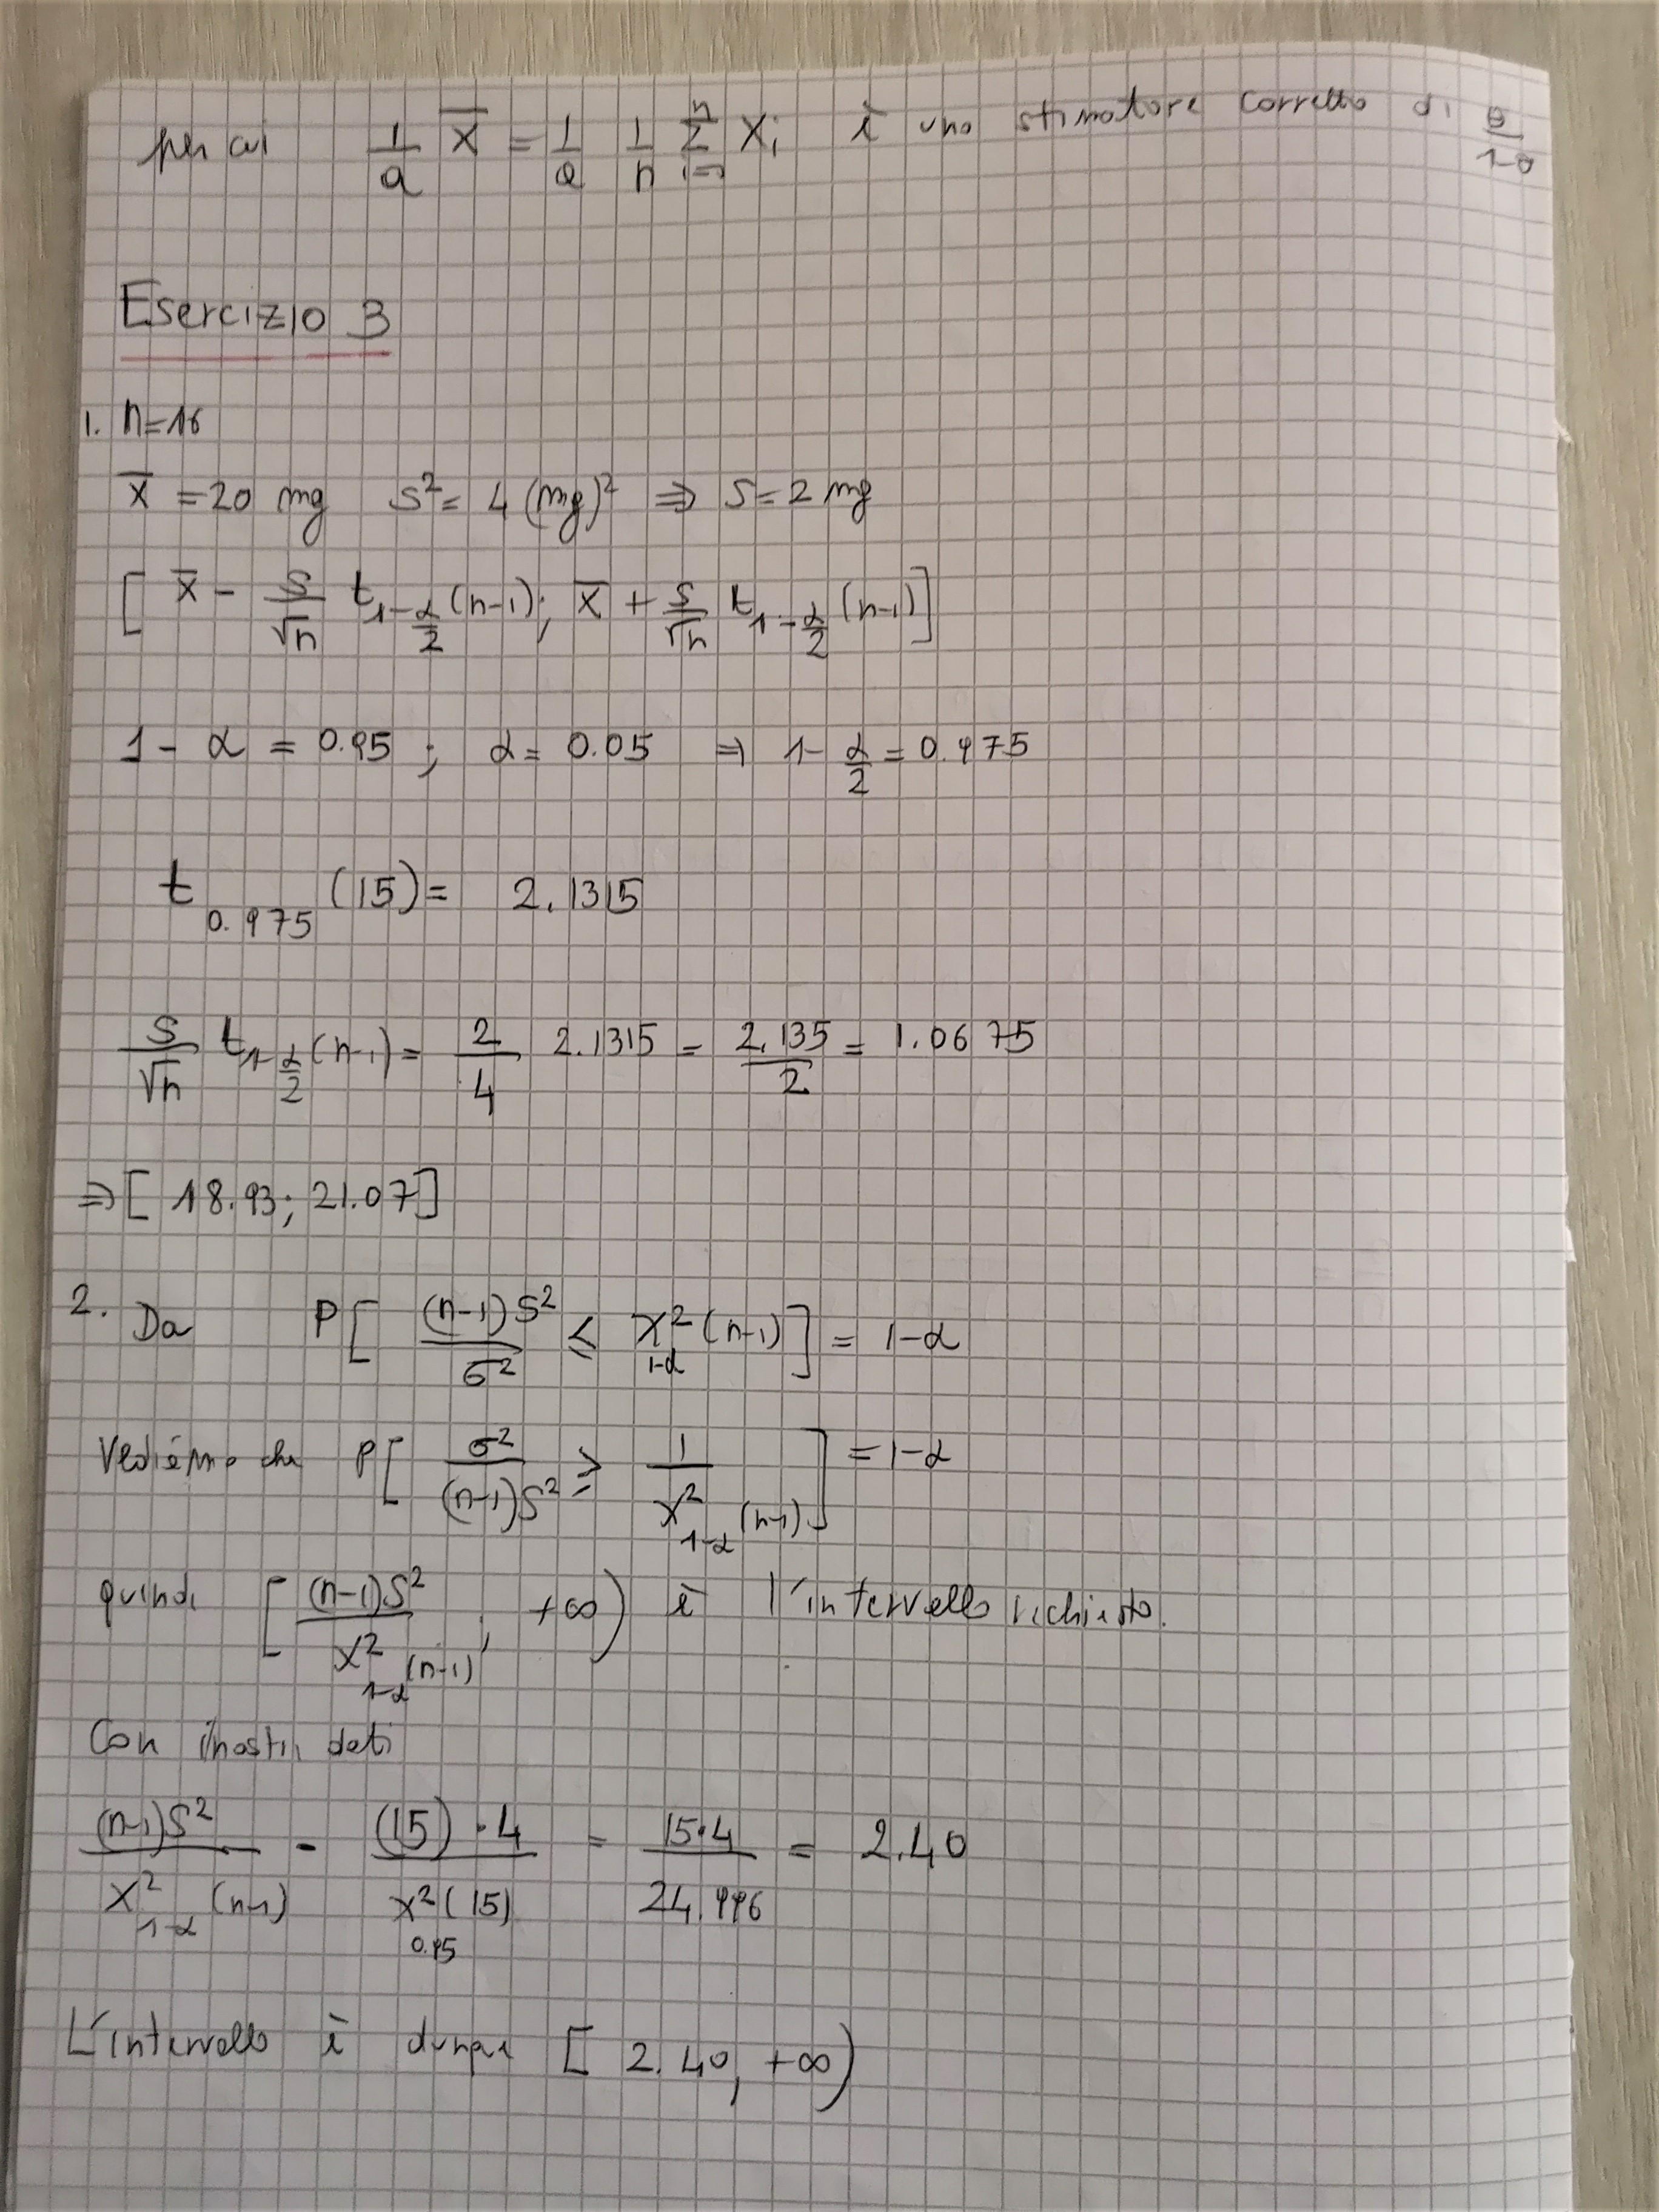 per cui 1/a X̄ = 1/a 1/n Σ_{i=1}^{n} X_i è uno stimatore corretto di θ/1-θ
Esercizio 3
1. n=16
x̄ = 20 mg s² = 4 (mg)² ⇒ s = 2 mg
[ x̄ - s/√n t_{1-α/2}(n-1); x̄ + s/√n t_{1-α/2}(n-1) ]
1 - α = 0.95 ; α = 0.05 ⇒ 1 - α/2 = 0.975
t_{0.975}(15) = 2.1315
s/√n t_{1-α/2}(n-1) = 2/4 · 2.1315 = 2.135/2 = 1.0675
⇒ [ 18.93; 21.07 ]
2. Da P[ (n-1)S²/σ² ≤ χ²_{1-α}(n-1) ] = 1-α
Vediamo che P[ σ²/(n-1)S² ≥ 1/χ²_{1-α}(n-1) ] = 1-α
quindi [ (n-1)S²/χ²_{1-α}(n-1), +∞ ) è l'intervallo richiesto.
Con i nostri dati
(n-1)S²/χ²_{1-α}(n-1) = (15)·4/χ²_{0.95}(15) = 15·4/24.996 = 2.40
L'intervallo è dunque [ 2.40, +∞ )